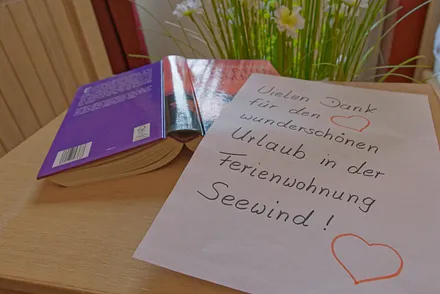 Vielen Dank
für den
wunderschönen
Urlaub in der
Ferienwohnung
Seewind!